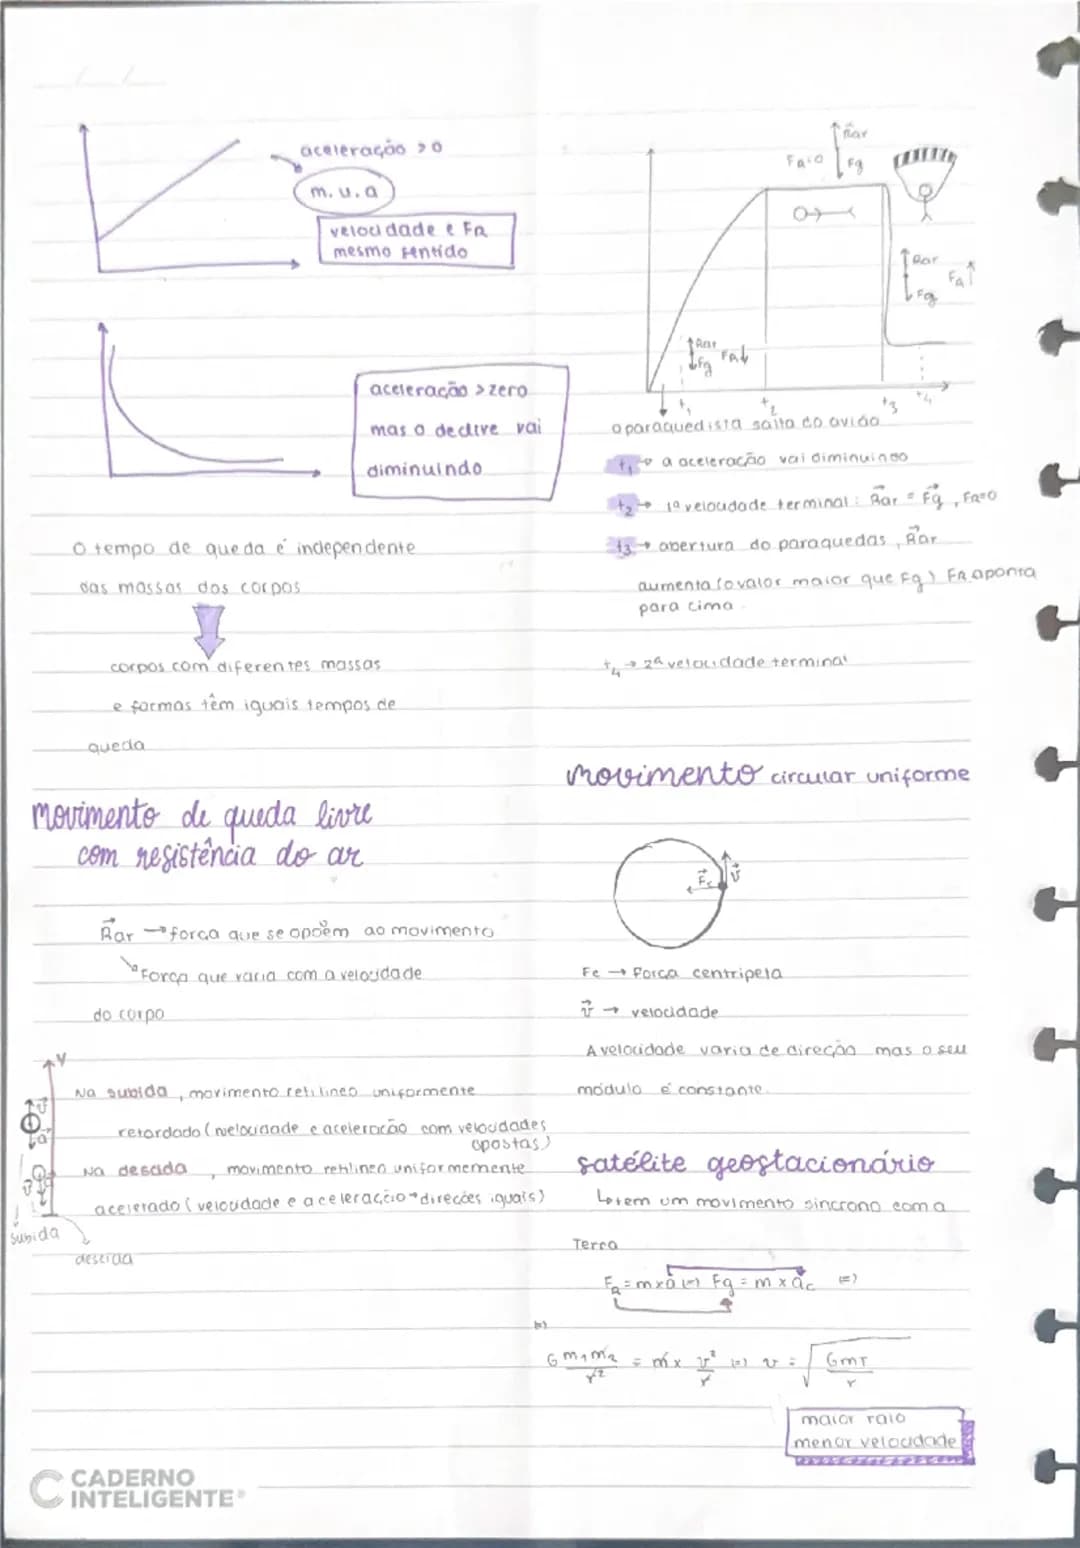 aceleração > 0
m.u.a
velocidade e FR
mesmo sentido
aceleração > zero
mas o declive vai
diminuindo
O tempo de queda é independente
das massas dos corpos
corpos com diferentes massas
e formas têm iguais tempos de
queda
movimento de queda livre
com resistência do ar
Rar → força que se opõem ao movimento
força que varia com a velocidade
do corpo
y
Na subida, movimento retilíneo uniformente
retardado (velocidade e aceleração com velocidades
opostas)
Na descida, movimento retilíneo uniformemente
acelerado (velocidade e aceleração → direções iguais)
subida
descida
CADERNO
INTELIGENTE
Rar
FR=0
Fg
Rar
FR
Fg
Rar
Fg
FR
t1
t2
t3
t4
o paraquedista salta do avião
t1 → a aceleração vai diminuindo
t2 → 1ª velocidade terminal: Rar = Fg, FR=0
t3 → abertura do paraquedas, Rar
aumenta (o valor maior que Fg) FR aponta
para cima.
t4 → 2ª velocidade terminal
movimento circular uniforme
Fc
v
Fc → Força centripeta
v → velocidade
A velocidade varia de direção mas o seu
módulo é constante.
satélite geostacionário
↳ tem um movimento síncrono com a
Terra
FR = m x a (=) Fg = m x ac (=)
(=)
G m1 m2 / r² = m x v² / r (=) v = √ G mT / r
maior raio
menor velocidade